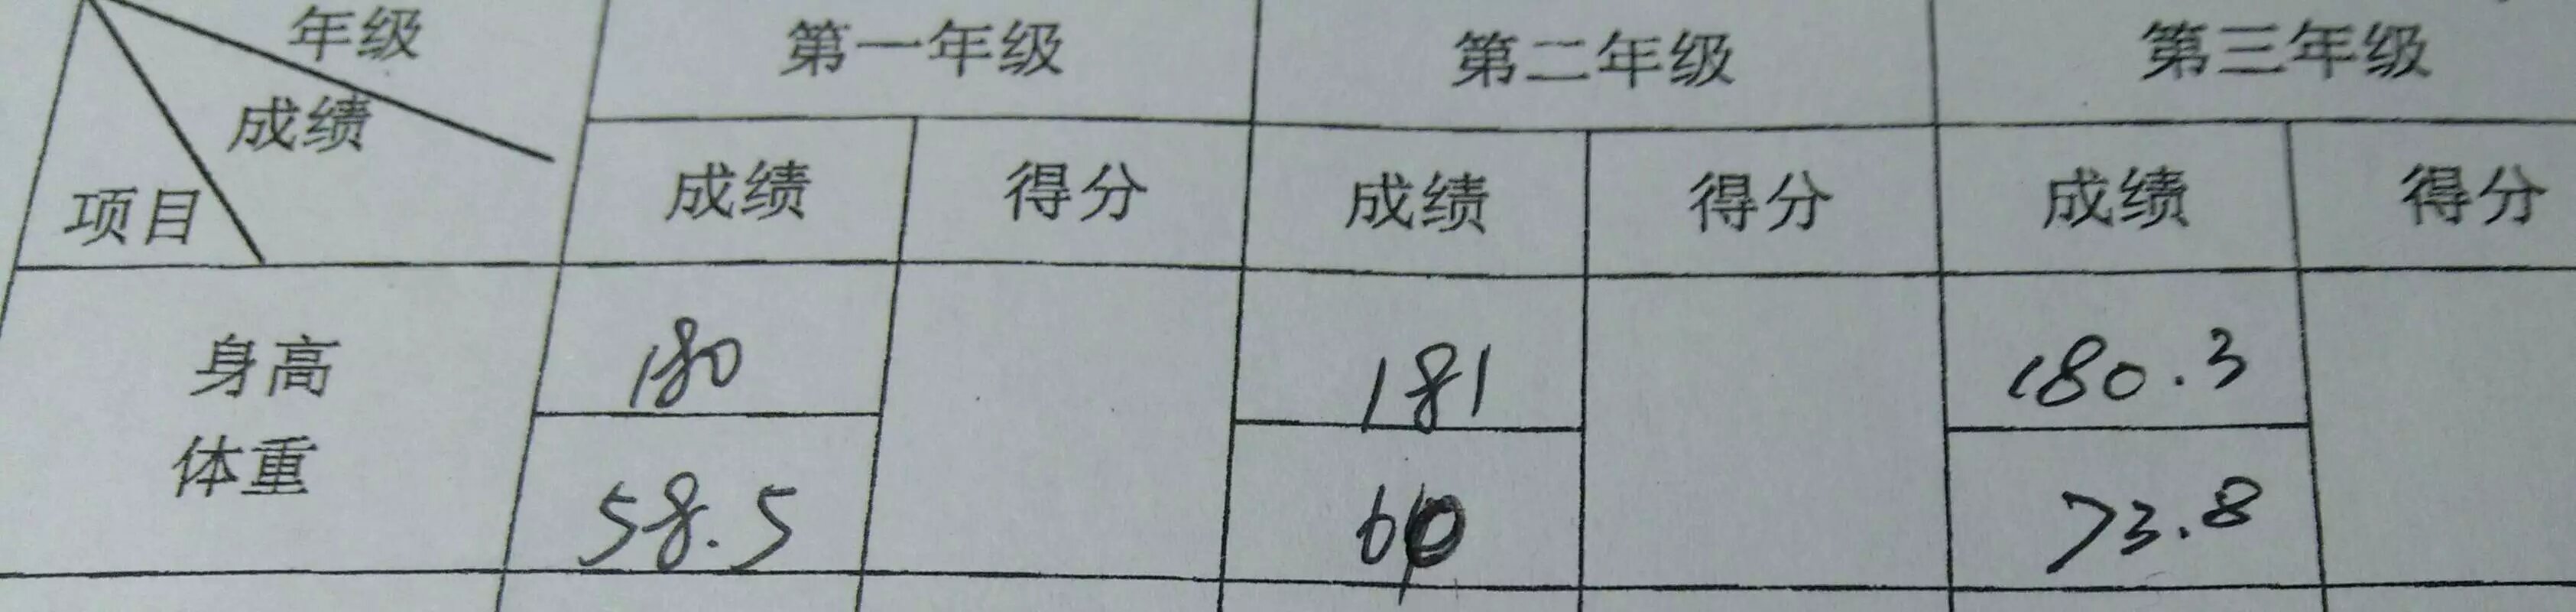 年级 第一年级 第二年级 第三年级
成绩
项目 成绩 得分 成绩 得分 成绩 得分
身高 180 181 180.3
体重 58.5 60 73.8